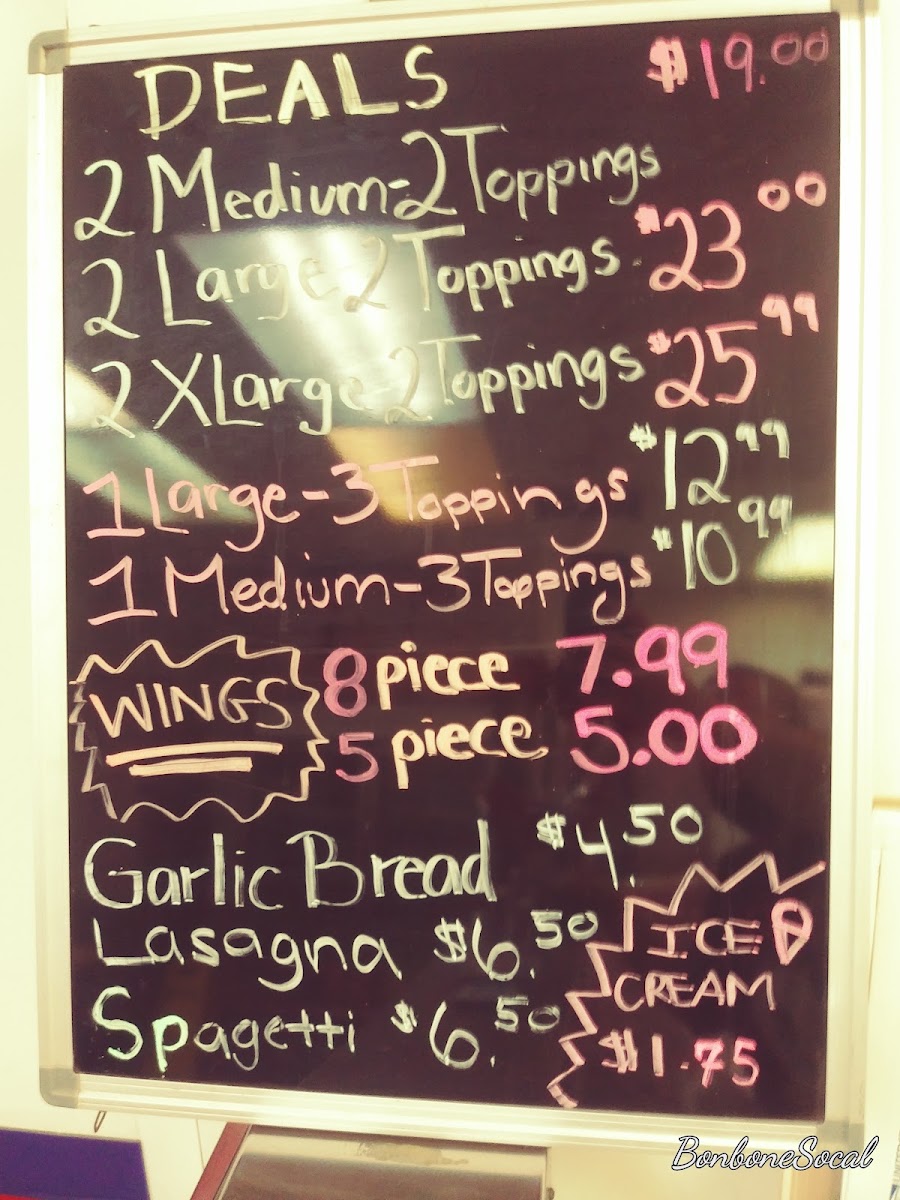 DEALS $19.00
2 Medium-2 Toppings
2 Large-2 Toppings $23.00
2 XLarge-2 Toppings $25.99
1 Large-3 Toppings $12.99
1 Medium-3 Toppings $10.99
WINGS 8 piece 7.99
5 piece 5.00
Garlic Bread $4.50
Lasagna $6.50
Spagetti $6.50
ICE
CREAM
$1.75
BonboneSocal